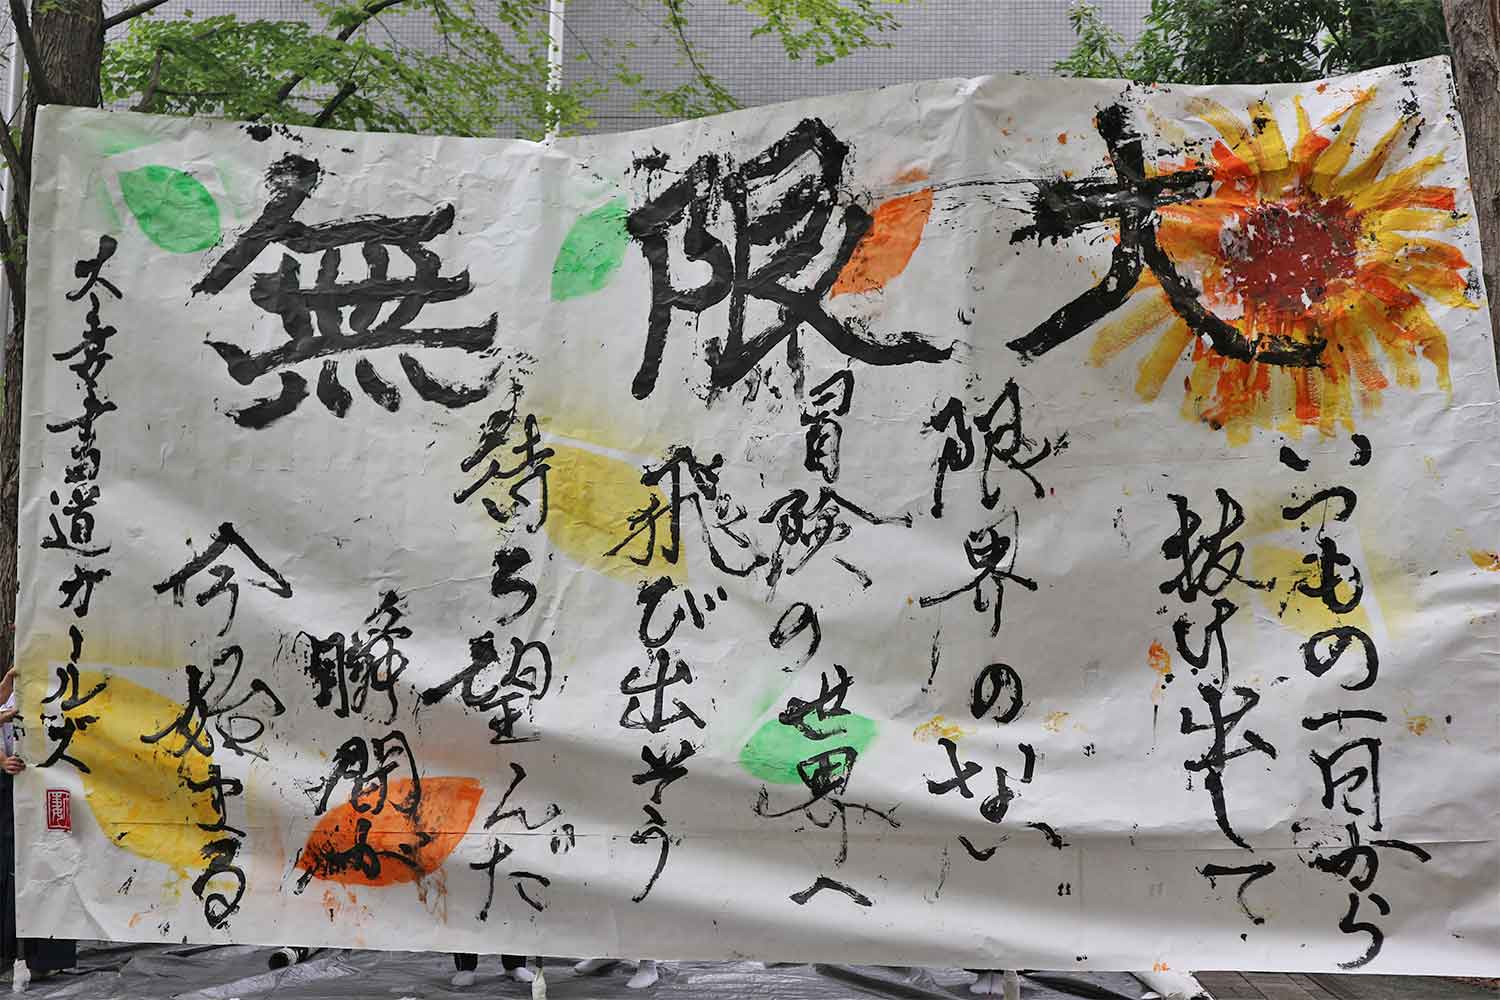 無限大
いつもの一日から
抜け出して
限界のない
冒険の世界へ
飛び出そう
待ち望んだ
瞬間が
今始まる
書道ガールズ